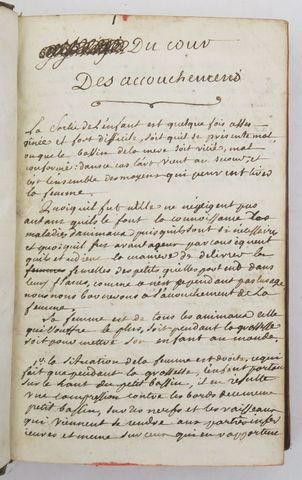 Du cour
Des accouchemens
La Sortie de L'enfant est quelque fois asses
et fort difficile, soit qu'il se présente mal
ou que le bassin de la mere soit vicié, mal
conformé: dans ce cas l'art vient au secour, et
est l'ensemble des moyens qui peuvent
la femme.
Quoiqu'il fut utile ne negligent pas
autant qu'ils le font la connoissance Les
maladies puisqu'ils sont si necessaires
et quoiqu'il fut avantageux par consequent
la maniere de delivrer la
femelles des petits qu'elles portent dans
leur flancs, comme
nous nous bornerons a l'accouchement de la
femme.
La femme est de tous les animaux celle
qui souffre le plus, soit pendant la grossesse
soit pour mettre son enfant au monde.
1° la situation de la femme est droite, ce qui
fait que pendant la grossesse, l'enfant portant
sur le haut du petit bassin, il en resulte
une compression contre les bords de ce meme
petit bassin, sur des nerfs et les vaisseaux
qui viennent se rendre aux parties inferi
eures et meme sur ceux qui en rapportent